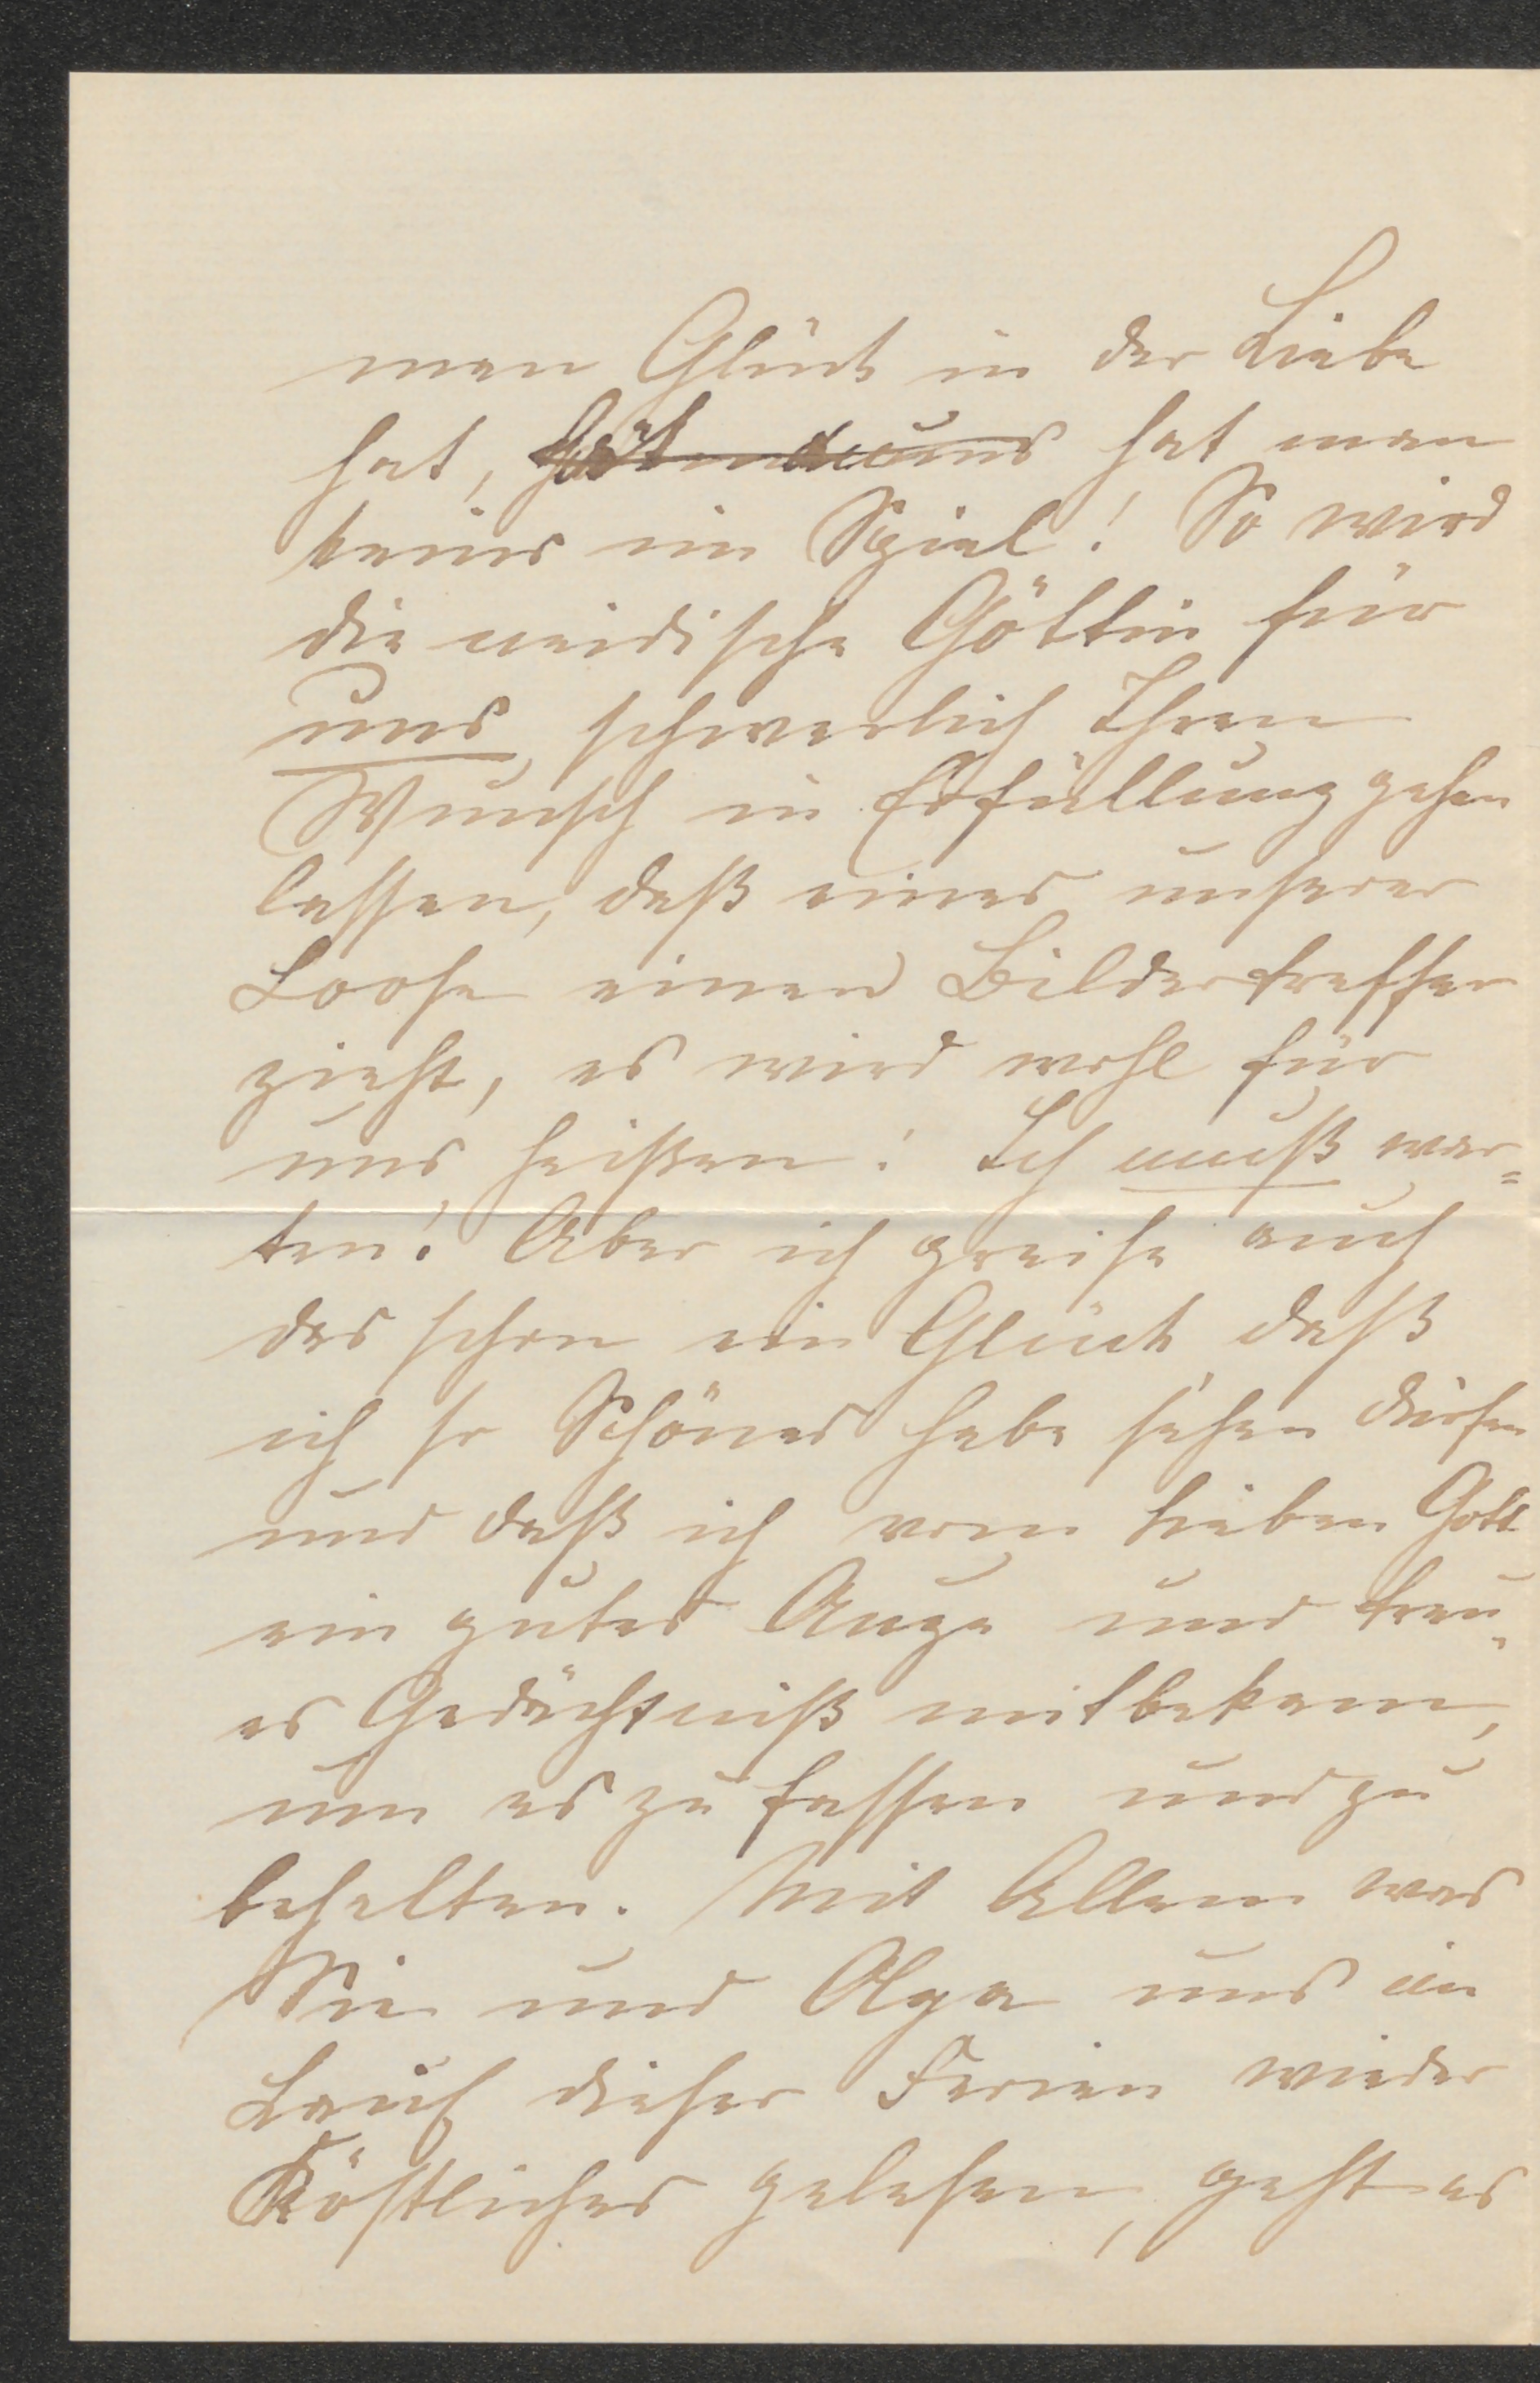 man Glück in der Liebe
hat, hat man
keins im Spiel! So wird
die neidische Göttin für
uns schwerlich Ihren
Wunsch in Erfüllung gehen
lassen, daß eines unserer
Loose einen Bildertreffer
zieht, es wird wohl für
uns heißen: Ich muß war=
ten! Aber ich preise auch
das schon ein Glück, daß
ich so Schönes habe sehen dürfen
und daß ich vom lieben Gott
ein gutes Auge und treu=
es Gedächtniß mitbekam,
um es zu fassen und zu
behalten. Mit Allem was
Sie und Olga uns im
Lauf dieser Ferien wieder
Köstliches gelesen, geht es